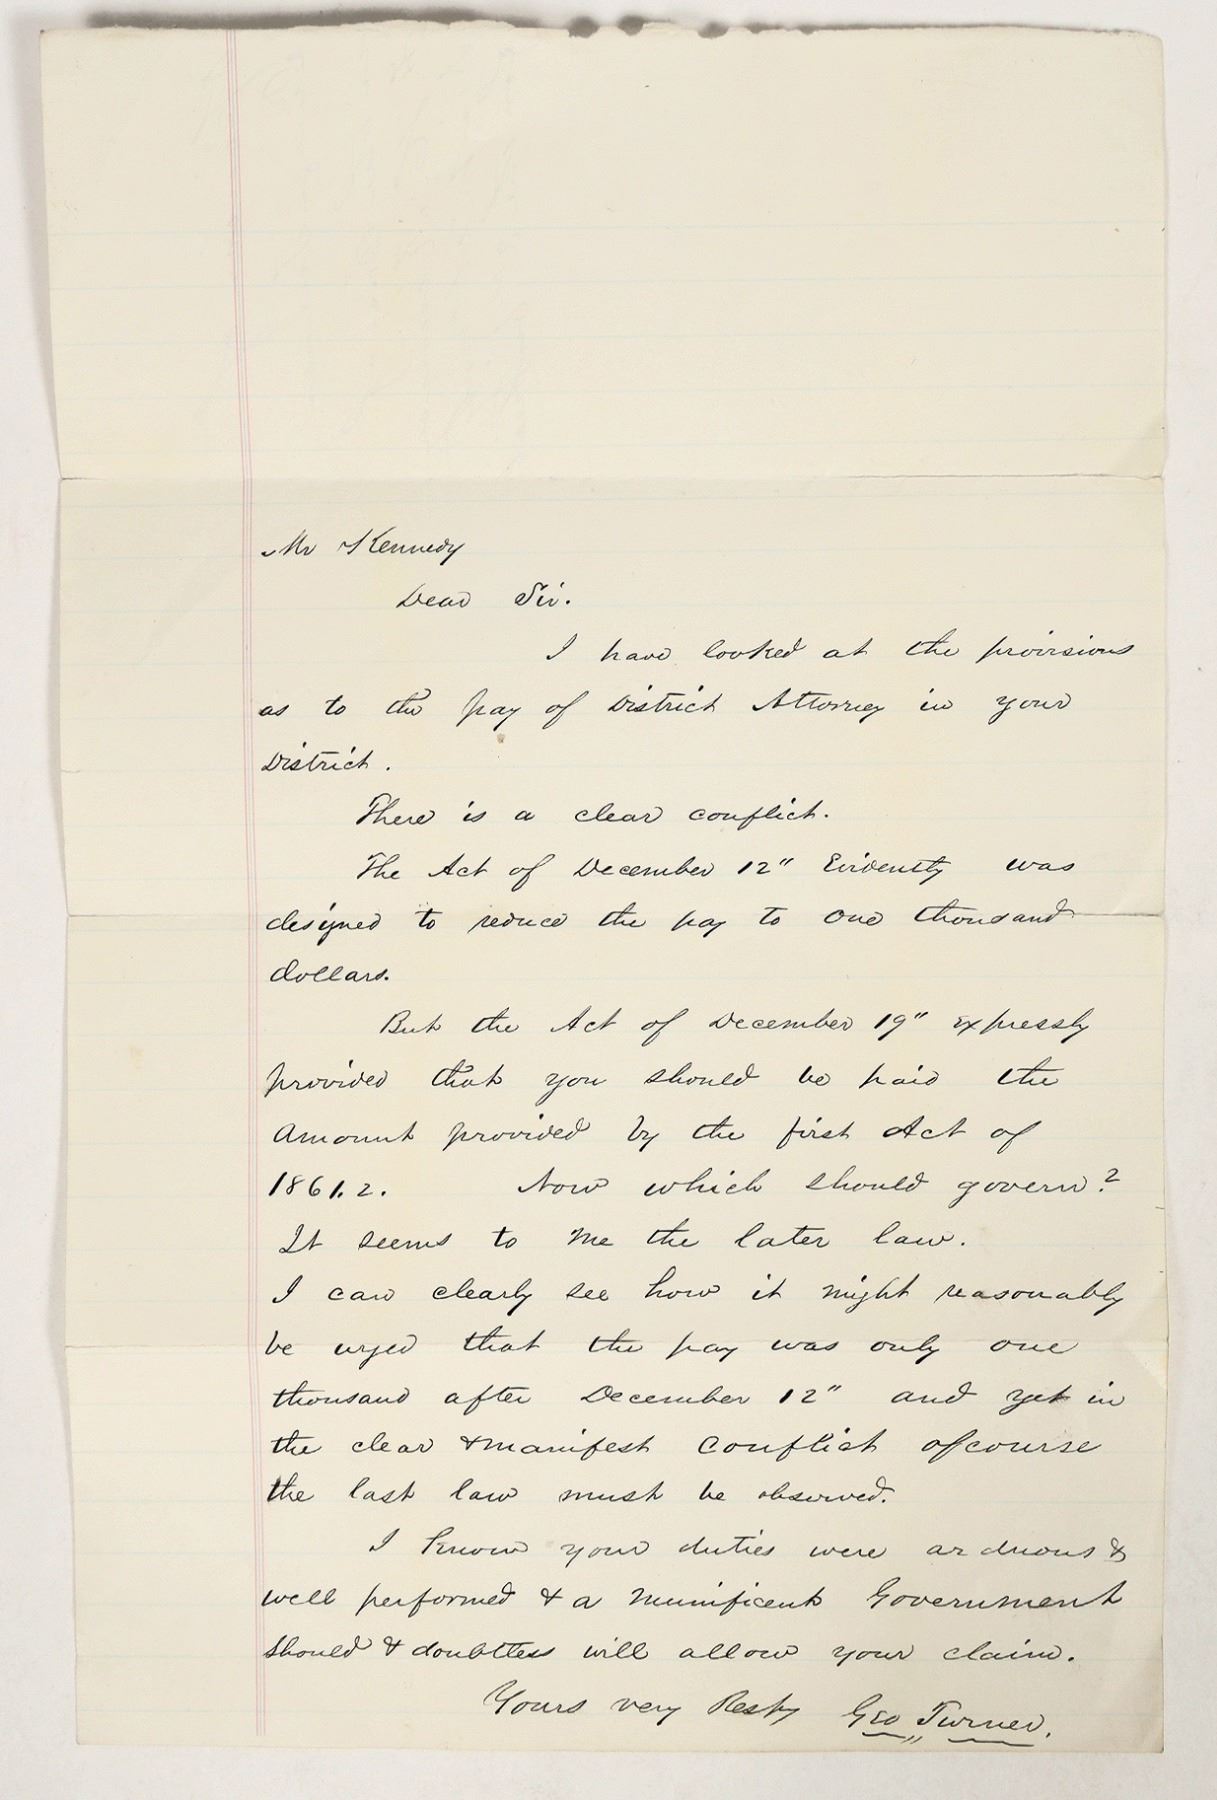 Mr Kennedy
Dear Sir.
I have looked at the provisions
as to the pay of District Attorney in your
District.
There is a clear conflict.
The Act of December 12" Evidently was
designed to reduce the pay to one thousand
dollars.
But the Act of December 19" expressly
provided that you should be paid the
Amount provided by the first Act of
1861.2. Now which should govern?
It seems to me the later law.
I can clearly see how it might reasonably
be urged that the pay was only one
thousand after December 12" and yet in
the clear & manifest conflict ofcourse
the last law must be observed.
I know your duties were arduous &
well performed & a munificent Government
should & doubtless will allow your claim.
Yours very Resty Geo Turner.